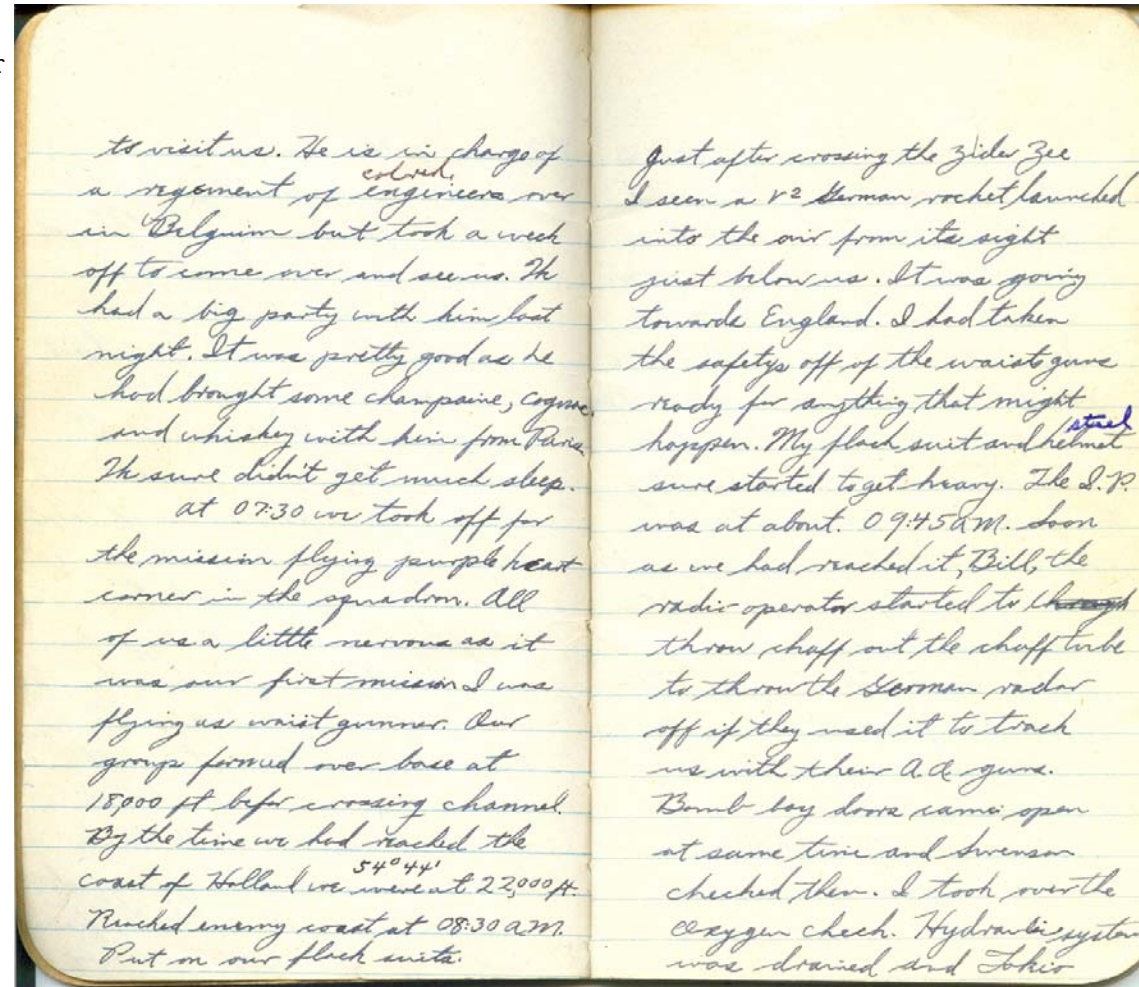 to visit us. He is in charge of
colored
a regement of engineers over
in Belguim but took a week
off to come over and see us. We
had a big party with him last
night. It was pretty good as he
had brought some champaine, cognac
and whiskey with him from Paris.
We sure didn't get much sleep.
at 07:30 we took off for
the mission flying purple heart
corner in the squadron. All
of us a little nervous as it
was our first mission I was
flying as waist gunner. Our
group formed over base at
18,000 ft befor crossing channel.
By the time we had reached the
54° 44'
coast of Holland we were at 22,000 ft.
Reached enemy coast at 08:30 a.m.
Put on our flack suits.
Just after crossing the Zider Zee
I seen a V2 German rocket launched
into the air from its sight
just below us. It was going
towards England. I had taken
the safetys off of the waist guns
ready for anything that might
steel
happen. My flack suit and helmet
sure started to get heavy. The I.P.
was at about. 09:45 a.m. Soon
as we had reached it, Bill, the
radio operator started to
throw chaff out the chaff tube
to throw the German radar
off if they used it to track
us with their A.A. guns.
Bomb bay doors came open
at same time and Swenson
checked them. I took over the
oxygen check. Hydraulic system
was drained and Tokio